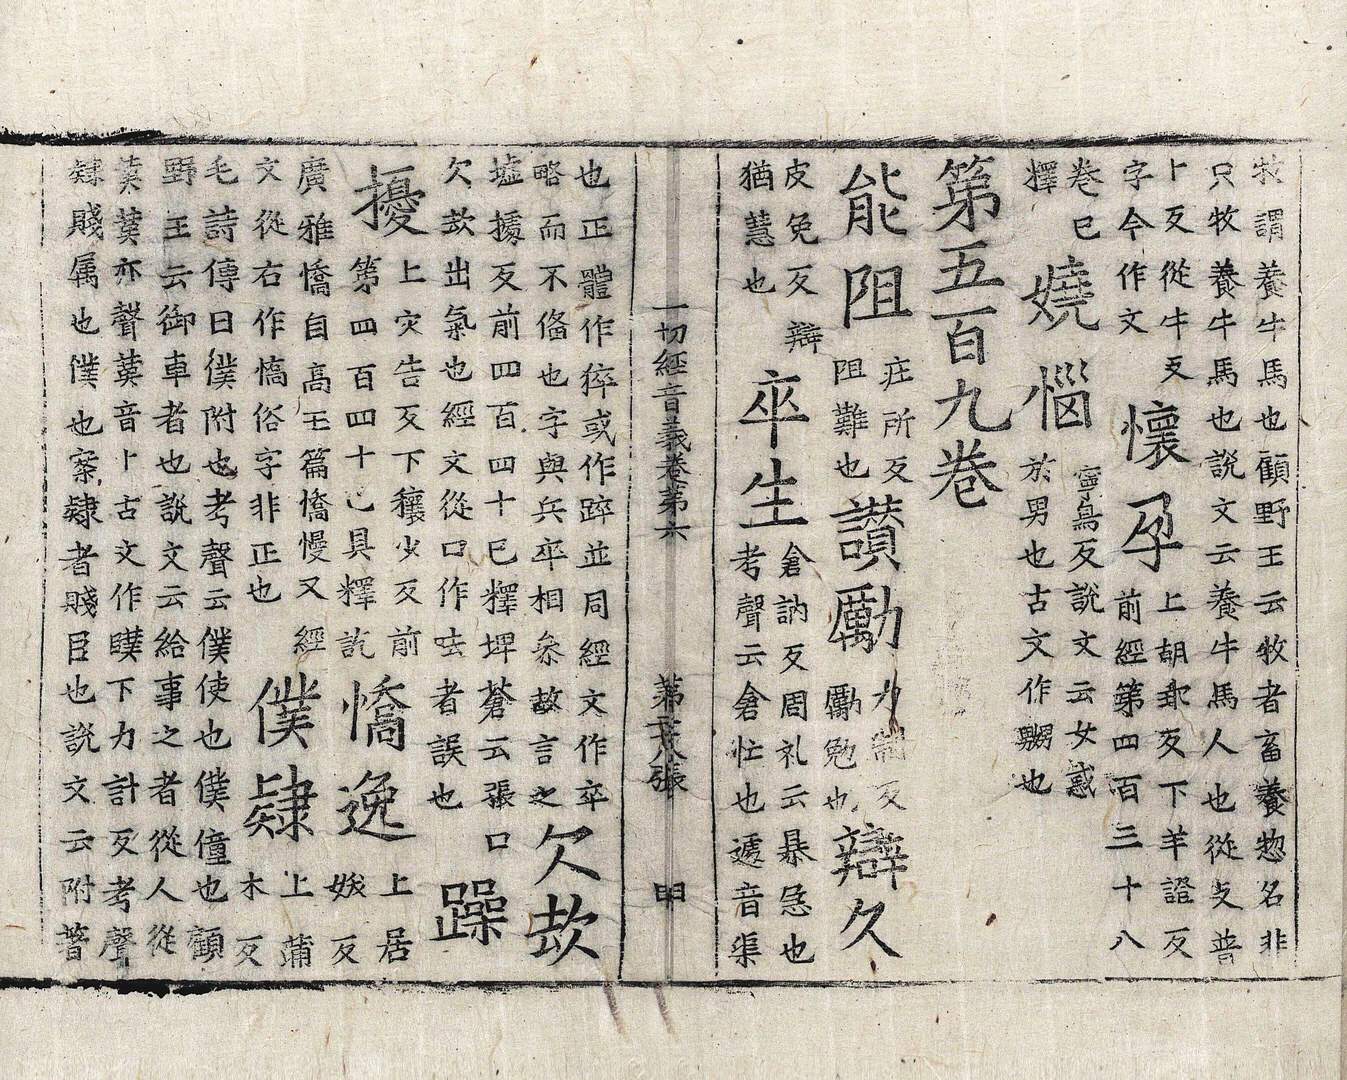 牧謂養牛馬也顧野王云牧者畜養惣名非
只牧養牛馬也説文云養牛馬人也從攴普
卜反從牛攴
字今作文
懷孕
上胡乖反下羊證反
前經第四百三十八
卷已
釋
嬈惱
寧鳥反説文云女惑
於男也古文作嬲也
第五百九卷
能阻
庄所反
阻難也
讃勵
力制反
勵勉也
辯久
皮免反
猶慧也
辯
卒生
倉訥反周礼云暴急也
考聲云倉忙也遽音渠
一切經音義卷第六
張
也正體作猝或作踤並同經文作卒
略而不俻也字與兵卒相叅故言之
欠㰦
墟據反前四百四十已釋埤蒼云張口
欠㰦出氣也經文從口作呿者誤也
躁
擾
上灾告反下穰少反前
第四百四十已具釋訖
憍逸
上居
妭反
廣雅憍自高王篇憍慢又經
文從右作憍俗字非正也
僕隷
上蒲
木反
毛詩傳曰僕附也考聲云僕使也僕僮也顧
野王云御車者也説文云給事之者從人從
菐菐亦聲菐音卜古文作䑑下力計反考聲
隷賤属也僕也案隷者賤臣也説文云附著